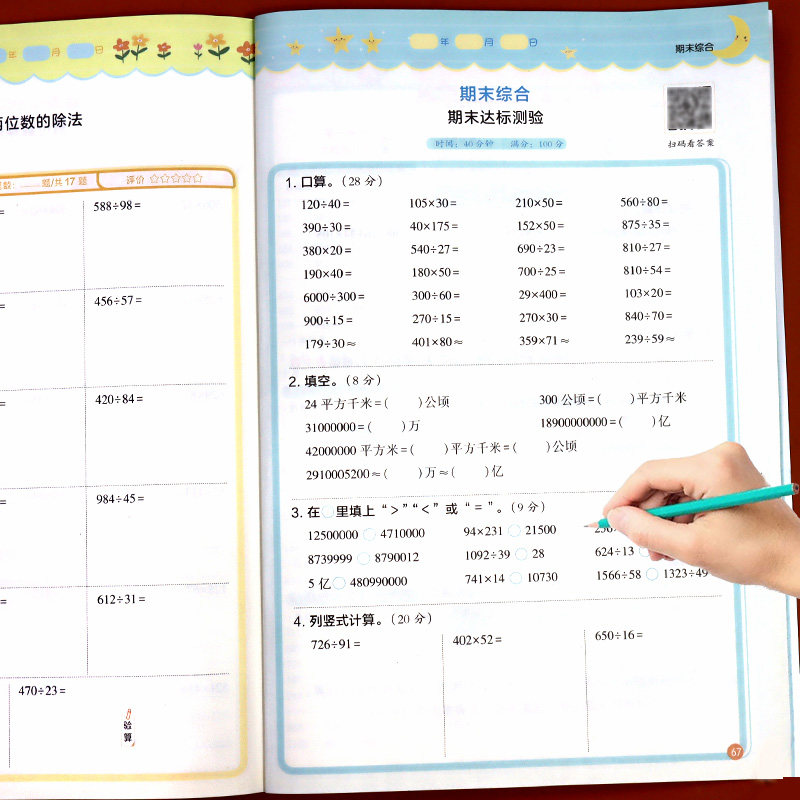 年 月 日
两位数的除法
题/共 17 题 评价 ☆☆☆☆☆
588÷98=
456÷57=
420÷84=
984÷45=
612÷31=
470÷23=
验算
年 月 日
期末综合
期末综合
期末达标测验
扫码看答案
时间：40分钟 满分：100分
1. 口算。（28 分）
120÷40= 105×30= 210×50= 560÷80=
390÷30= 40×175= 152×50= 875÷35=
380×20= 540÷27= 690÷23= 810÷27=
190×40= 180×50= 700÷25= 810÷54=
6000÷300= 300÷60= 29×400= 103×20=
900÷15= 270÷15= 270×30= 840÷70=
179÷30≈ 401×80≈ 359×71≈ 239÷59≈
2. 填空。（8 分）
24 平方千米=（ ）公顷 300 公顷=（ ）平方千米
31000000=（ ）万 18900000000=（ ）亿
42000000 平方米=（ ）平方千米=（ ）公顷
2910005200≈（ ）万≈（ ）亿
3. 在○里填上“＞”“＜”或“＝”。（9 分）
12500000 ○ 4710000 94×231 ○ 21500
8739999 ○ 8790012 1092÷39 ○ 28 624÷13 ○
5 亿 ○ 480990000 741×14 ○ 10730 1566÷58 ○ 1323÷49
4. 列竖式计算。（20 分）
726÷91= 402×52= 650÷16=
67